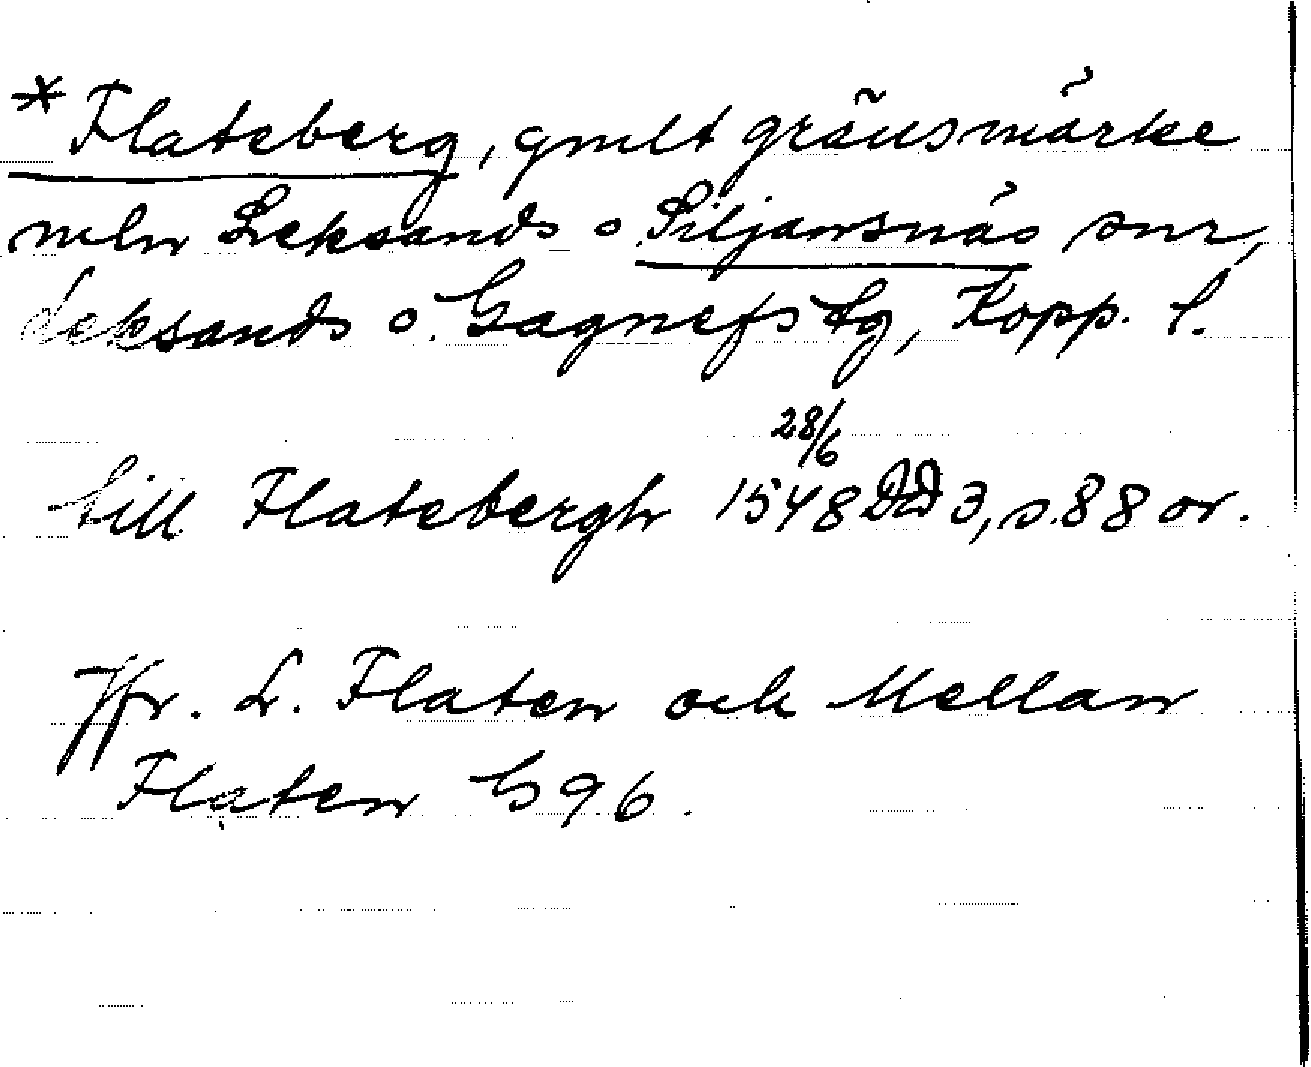 * Flateberg, gmlt gränsmärke
mln Leksands o Siljansnäs snr,
Leksands o. Gagnefs tg, Kopp. l.
till Flatebergh 28/6 1548 DD 3, s. 88 or.
Jfr. L. Flaten och Mellan
Flaten G 96.